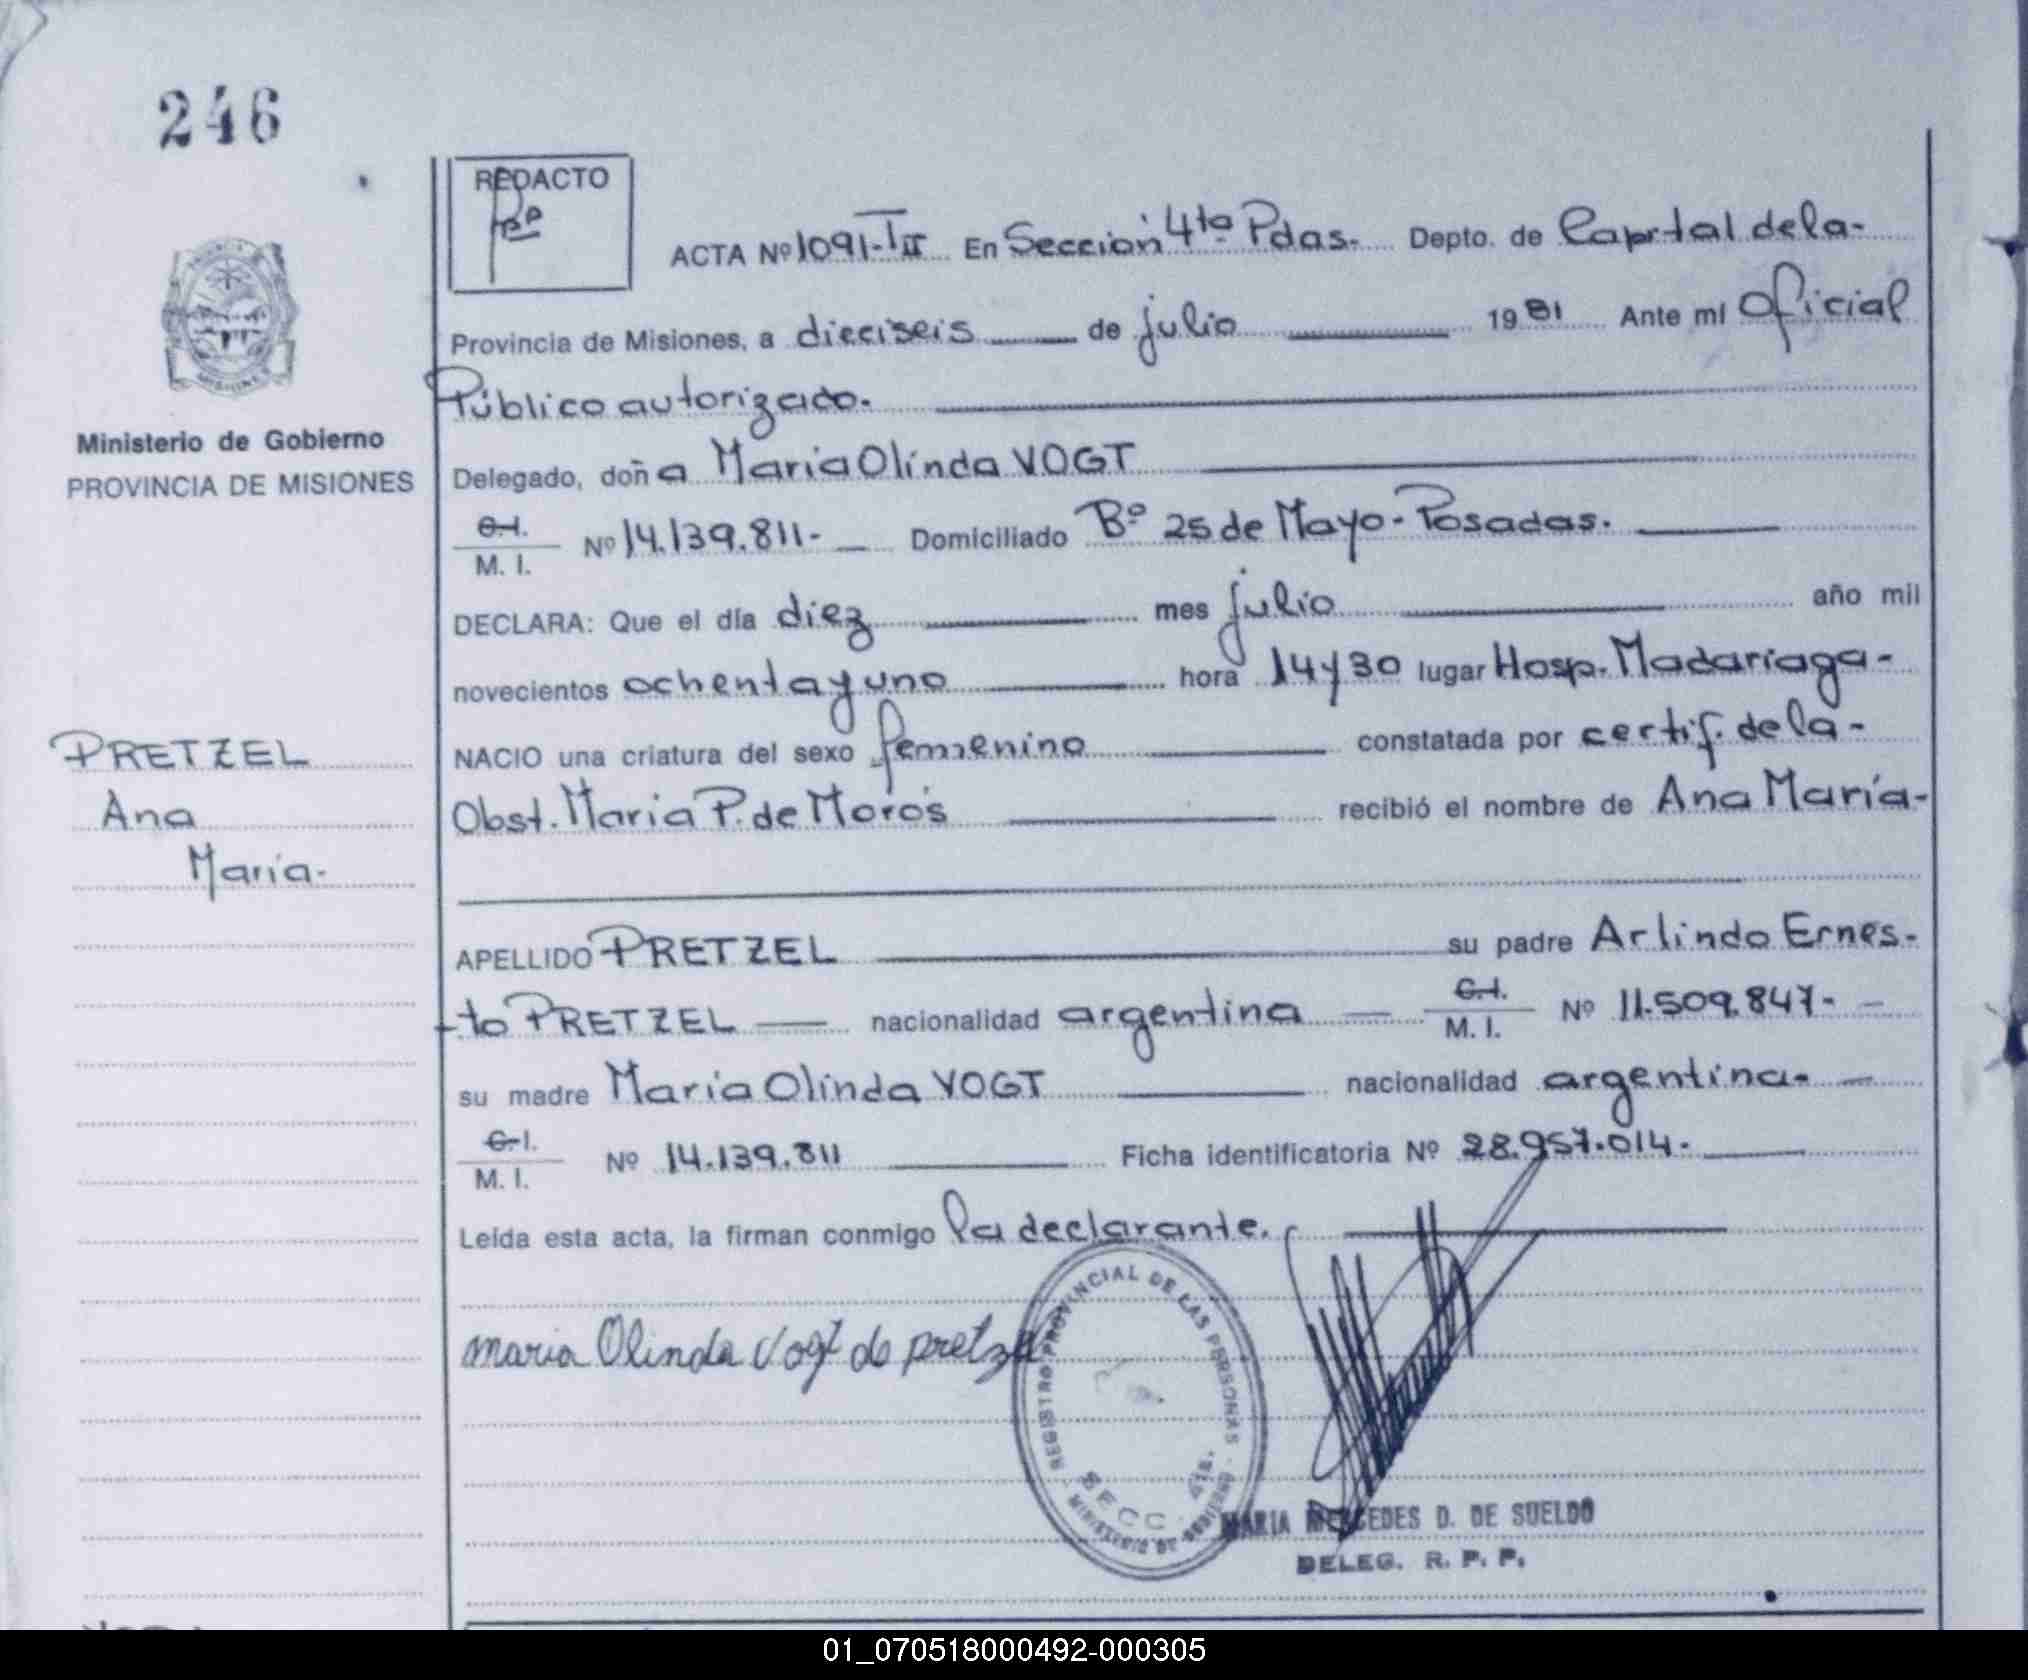 246
REDACTO
ACTA Nº 1091-TII En Sección 4ta Pdas. Depto. de Capital de la-
Provincia de Misiones, a dieciseis de julio 1981 Ante mí Oficial
Público autorizado.
Ministerio de Gobierno
PROVINCIA DE MISIONES
Delegado, doña Maria Olinda VOGT
C.I.
M. I. Nº 14.139.811.- Domiciliado Bº 25 de Mayo - Posadas.
DECLARA: Que el día diez mes julio año mil
novecientos ochenta y uno hora 14 y 30 lugar Hosp. Madariaga-
NACIO una criatura del sexo femenino constatada por certif. de la-
Obst. Maria P. de Morós recibió el nombre de Ana María-
PRETZEL
Ana
María.
APELLIDO PRETZEL su padre Arlindo Ernes-
-to PRETZEL nacionalidad argentina C.I. M. I. Nº 11.509.847.-
su madre Maria Olinda VOGT nacionalidad argentina.-
C.I.
M. I. Nº 14.139.811 Ficha identificatoria Nº 28.957.014.-
Leída esta acta, la firman conmigo la declarante.
maria Olinda Vogt de pretzel
REGISTRO PROVINCIAL DE LAS PERSONAS
SECC. 4ta.
MINISTERIO DE GOBIERNO
MARIA MERCEDES D. DE SUELDO
DELEG. R. P. P.
01_070518000492-000305